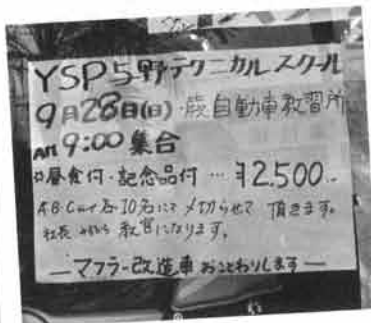 YSP与野テクニカルスクール
9月28日(日)・蕨自動車教習所
AM 9:00 集合
昼食付・記念品付…¥2,500.-
A・B・C 各10名にて〆切らせて頂きます。
社長 みずから 教官になります。
—マフラー改造車おことわりします—